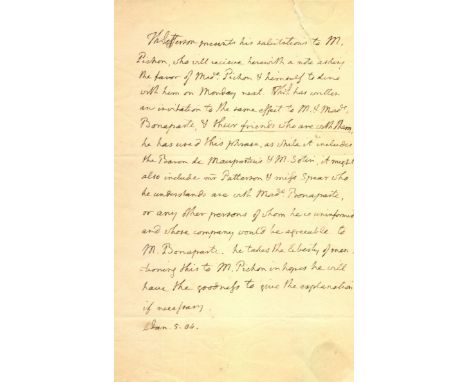 Th Jefferson presents his salutations to M.
Pichon, who will recieve herewith a note asking
the favor of Made. Pichon & himself to dine
with him on Monday next. Th:J. has written
an invitation to the same effect to M. & Made.
Bonaparte, & their friends who are with them,
he has used this phrase, as while it includes
the Baron de Maupertuis & M. Sotin, it might
also include mr Patterson & miss Spear who
he understands are with Made. Bonaparte,
or any other persons of whom he is uninformed
and whose company would be agreeable to
M. Bonaparte. he takes the liberty of men-
-tioning this to M. Pichon in hopes he will
have the goodness to give the explanation
if necessary.
Jan. 5. 04.